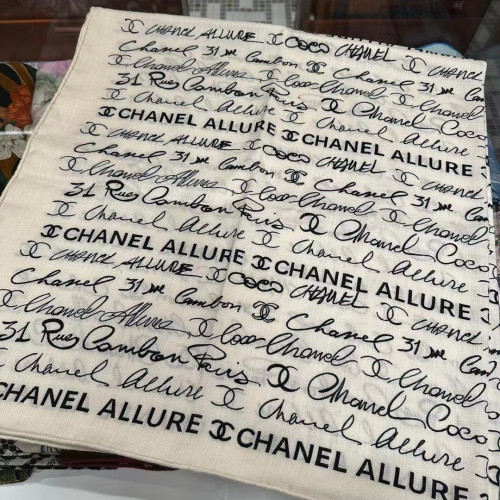 CHANEL ALLURE COCO CHANEL CHANEL
Chanel 31 Cambon Chanel 31
Chanel Allure Coco Chanel Chanel
31 Rue Cambon Paris Chanel Coco
Chanel Allure Chanel Allure
CHANEL ALLURE CHANEL ALLURE
CHANEL ALLURE COCO CHANEL CHANEL
Chanel 31 Cambon Chanel 31
Chanel Allure Coco Chanel Chanel
31 Rue Cambon Paris Chanel Coco
Chanel Allure Chanel Allure
CHANEL ALLURE CHANEL ALLURE
CHANEL ALLURE COCO CHANEL CHANEL
Chanel 31 Cambon Chanel 31
Chanel Allure Coco Chanel Chanel
31 Rue Cambon Paris Chanel Coco
Chanel Allure Chanel Allure
CHANEL ALLURE CHANEL ALLURE